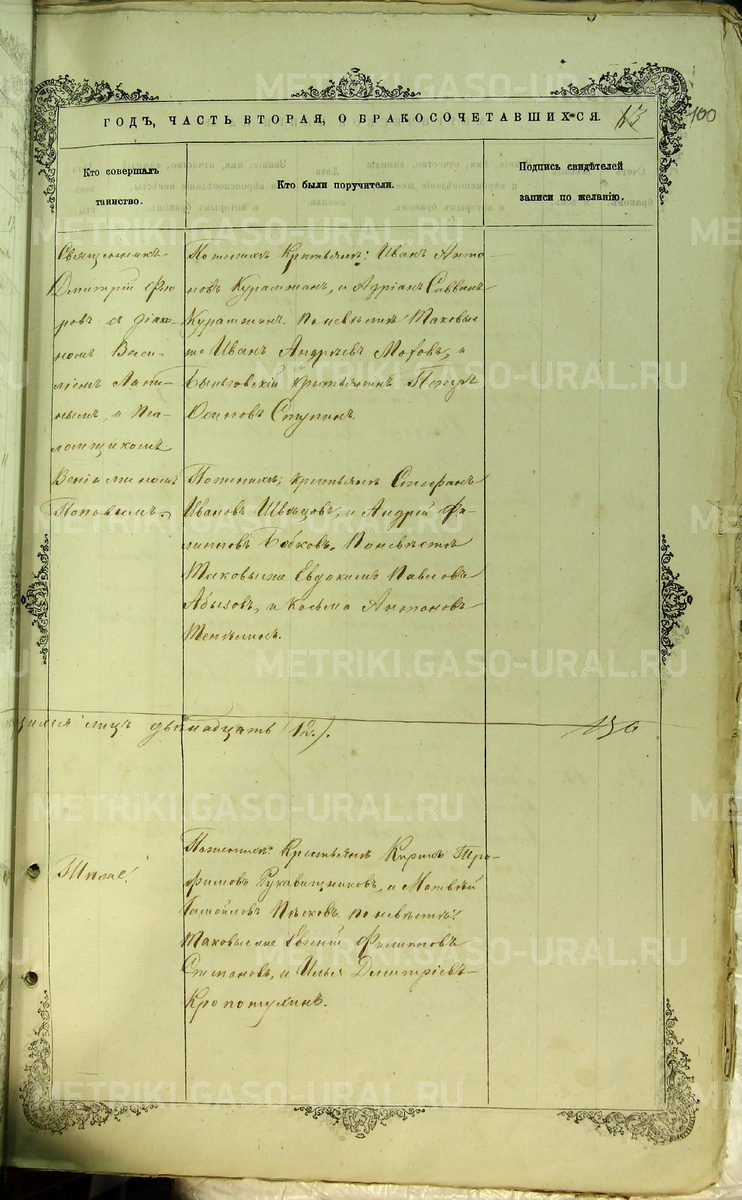 ГОДЪ, ЧАСТЬ ВТОРАЯ, О БРАКОСОЧЕТАВШИХСЯ. 13
100
Кто совершалъ таинство.
Кто были поручители.
Подпись свидѣтелей записи по желанію.
Священникъ
Дмитрій Фло
ровъ съ діако
номъ Васи
ліемъ Лапи
нымъ, и Пса
ломщикомъ
Веніаминомъ
Поповымъ.
По женихѣ Крестьяне: Иванъ Анто
новъ Курамжинъ, и Адріанъ Саввинъ
Курамжинъ. По невѣстѣ Таковые
же Иванъ Андреевъ, и
крестьянинъ Петръ
Осиповъ Ступинъ.
По женихѣ; крестьяне Стефанъ
Ивановъ Швецовъ, и Андрей Фи
липповъ Бобковъ. По невѣстѣ
Таковые же Евдокимъ Павловъ
Абызовъ, и Косьма Антоновъ
лицъ двѣнадцать (12.).
Тѣже!
По женихѣ: Крестьяне Кирикъ Тро
фимовъ Рукавишниковъ, и Матвѣй
Самойловъ Пѣсковъ. по невѣстѣ:
Таковые же Евгеній Филиповъ
Степановъ, и Илья Димитріевъ
Кропотухинъ.
METRIKI.GASO-URAL.RU